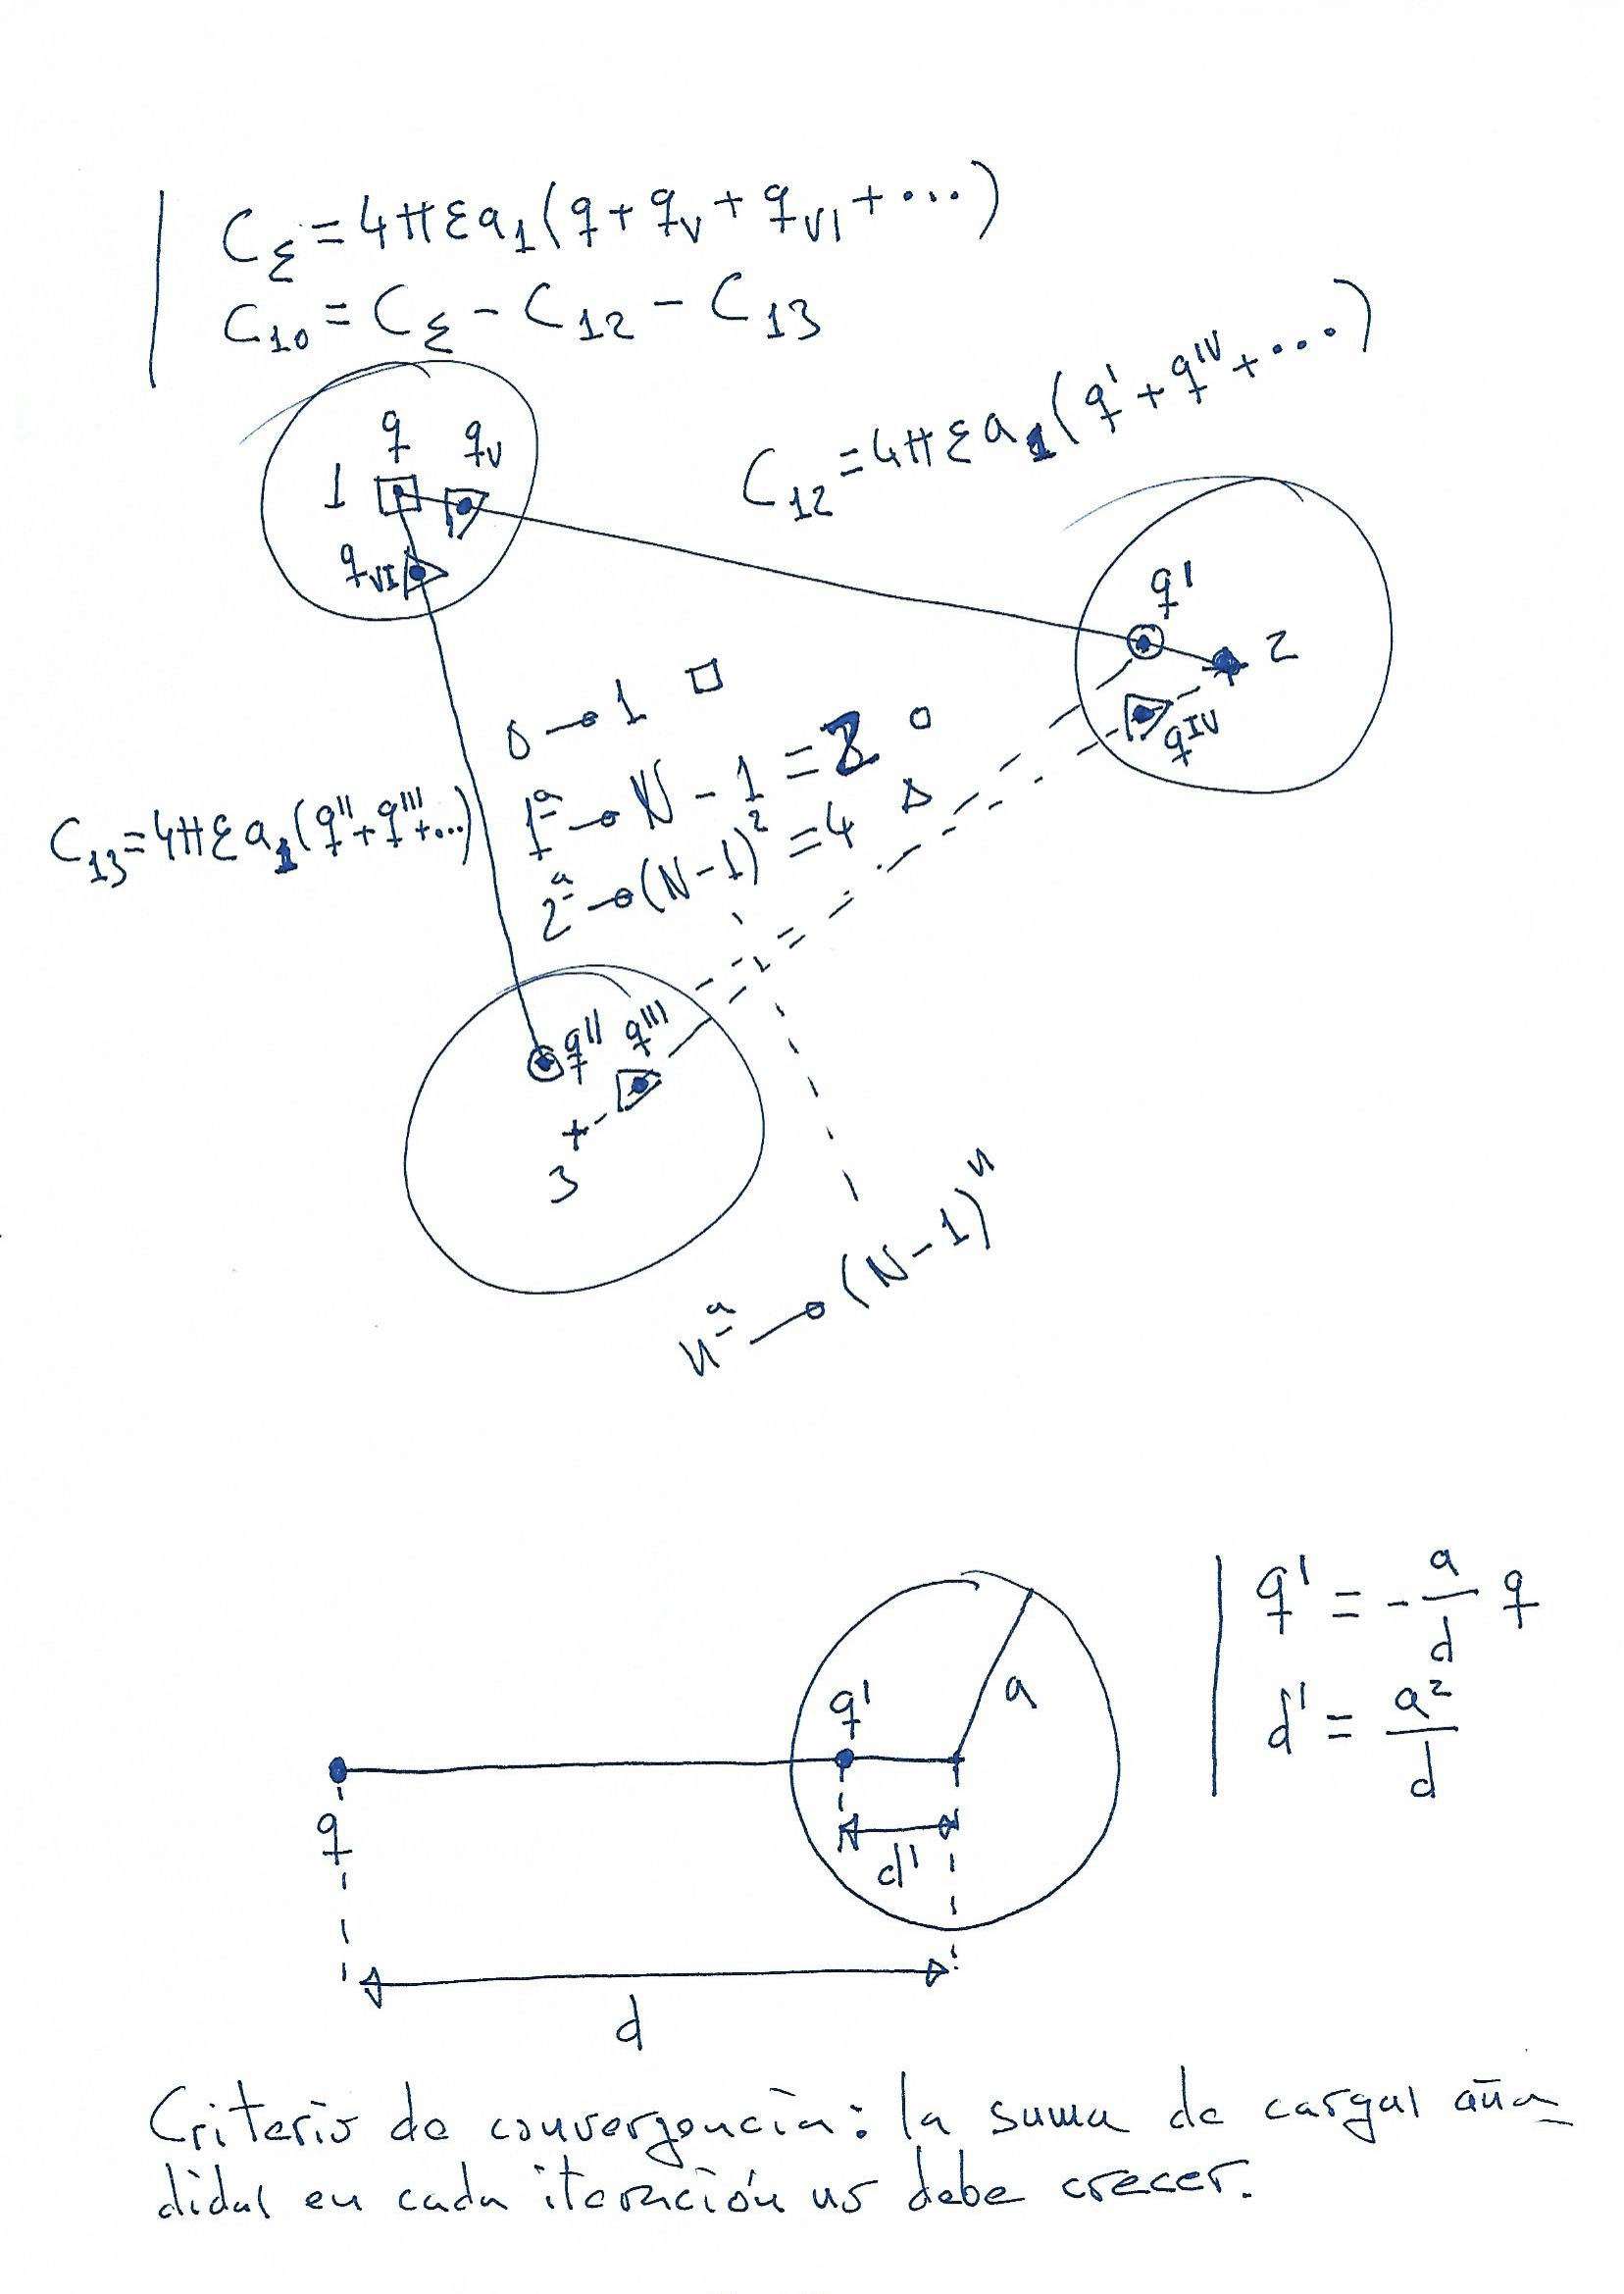 C_Σ = 4πεa₁(q + q_V + q_VI + ...)
C₁₀ = C_Σ - C₁₂ - C₁₃
C₁₂ = 4πεa₁(q' + q^IV + ...)
q
q_V
1
q_VI
q'
2
q^IV
0 → 1 □
1ª → N - 1 = 2 ○
2ª → (N-1)² = 4 △
C₁₃ = 4πεa₁(q'' + q''' + ...)
q'' q'''
3
nª → (N-1)ⁿ
q' = - a/d q
d' = a²/d
q'
a
q
d'
d
Criterio de convergencia: la suma de cargas aña
didas en cada iteración no debe crecer.